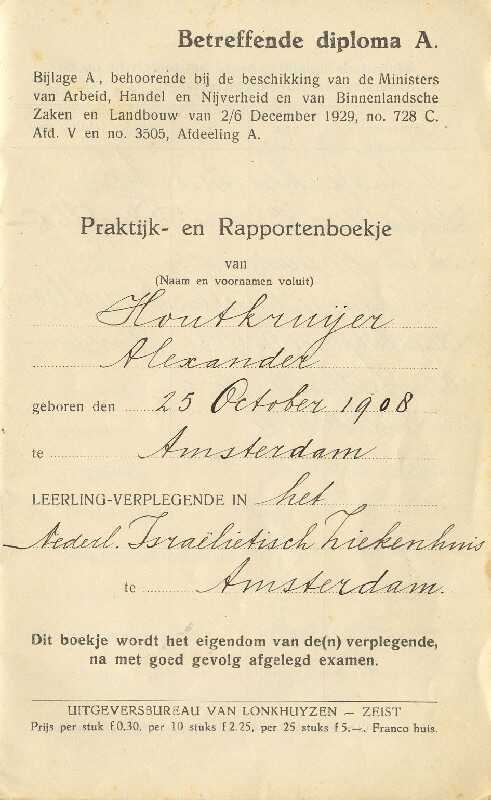 Betreffende diploma A.
Bijlage A, behoorende bij de beschikking van de Ministers
van Arbeid, Handel en Nijverheid en van Binnenlandsche
Zaken en Landbouw van 2/6 December 1929, no. 728 C.
Afd. V en no. 3505, Afdeeling A.
Praktijk- en Rapportenboekje
van
(Naam en voornamen voluit)
Houtkruijer
Alexander
geboren den 25 October 1908
te Amsterdam
LEERLING-VERPLEGENDE IN het
Nederl. Israëlietisch Ziekenhuis
te Amsterdam.
Dit boekje wordt het eigendom van de(n) verplegende,
na met goed gevolg afgelegd examen.
UITGEVERSBUREAU VAN LONKHUYZEN — ZEIST
Prijs per stuk f 0.30, per 10 stuks f 2.25, per 25 stuks f 5.—. Franco huis.